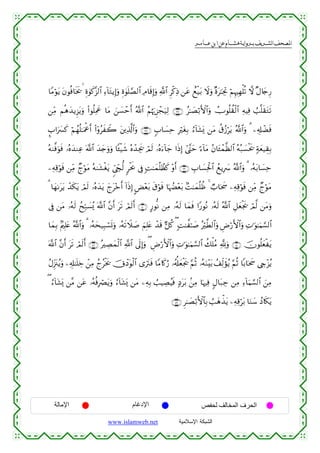 المصحف الشريف برواية هشام عن ابن عامر
رِجَالٌ لَّا تُلْهِيهِمْ تِجَٰرَةٌ وَلَا بَيْعٌ عَن ذِكْرِ ٱللَّهِ وَإِقَامِ ٱلصَّلَوٰةِ وَإِيتَآءِ ٱلزَّكَوٰةِ يَخَافُونَ يَوْمًا
تَتَقَلَّبُ فِيهِ ٱلْقُلُوبُ وَٱلْأَبْصَٰرُ لِيَجْزِيَهُمُ ٱللَّهُ أَحْسَنَ مَا عَمِلُوا۟ وَيَزِيدَهُم مِّن
فَضْلِهِۦ وَٱللَّهُ يَرْزُقُ مَن يَشَآءُ بِغَيْرِ حِسَابٍ وَٱلَّذِينَ كَفَرُوٓا۟ أَعْمَٰلُهُمْ كَسَرَابٍ
بِقِيعَةٍ يَحْسَبُهُ ٱلظَّمْـَٔانُ مَآءً حَتَّىٰٓ إِذَا جَآءَهُۥ لَمْ يَجِدْهُ شَيْـًٔا وَوَجَدَ ٱللَّهَ عِندَهُۥ فَوَفَّىٰهُ
حِسَابَهُۥ وَٱللَّهُ سَرِيعُ ٱلْحِسَابِ أَوْ كَظُلُمَٰتٍ فِى بَحْرٍ لُّجِّىٍّ يَغْشَىٰهُ مَوْجٌ مِّن فَوْقِهِۦ
مَوْجٌ مِّن فَوْقِهِۦ سَحَابٌ ظُلُمَٰتٌۢ بَعْضُهَا فَوْقَ بَعْضٍ إِذَآ أَخْرَجَ يَدَهُۥ لَمْ يَكَدْ يَرَىٰهَا
وَمَن لَّمْ يَجْعَلِ ٱللَّهُ لَهُۥ نُورًا فَمَا لَهُۥ مِن نُّورٍ أَلَمْ تَرَ أَنَّ ٱللَّهَ يُسَبِّحُ لَهُۥ مَن فِى
ٱلسَّمَٰوَٰتِ وَٱلْأَرْضِ وَٱلطَّيْرُ صَٰٓفَّٰتٍ كُلٌّ قَدْ عَلِمَ صَلَاتَهُۥ وَتَسْبِيحَهُۥ وَٱللَّهُ عَلِيمٌۢ بِمَا
يَفْعَلُونَ وَلِلَّهِ مُلْكُ ٱلسَّمَٰوَٰتِ وَٱلْأَرْضِ وَإِلَى ٱللَّهِ ٱلْمَصِيرُ أَلَمْ تَرَ أَنَّ ٱللَّهَ
يُزْجِى سَحَابًا ثُمَّ يُؤَلِّفُ بَيْنَهُۥ ثُمَّ يَجْعَلُهُۥ رُكَامًا فَتَرَى ٱلْوَدْقَ يَخْرُجُ مِنْ خِلَٰلِهِۦ وَيُنَزِّلُ
مِنَ ٱلسَّمَآءِ مِن جِبَالٍ فِيهَا مِنۢ بَرَدٍ فَيُصِيبُ بِهِۦ مَن يَشَآءُ وَيَصْرِفُهُۥ عَن مَّن يَشَآءُ
يَكَادُ سَنَا بَرْقِهِۦ يَذْهَبُ بِٱلْأَبْصَٰرِ
الحرف المخالف لحفص الإدغام الإمالة
الشبكة الإسلامية www.islamweb.net